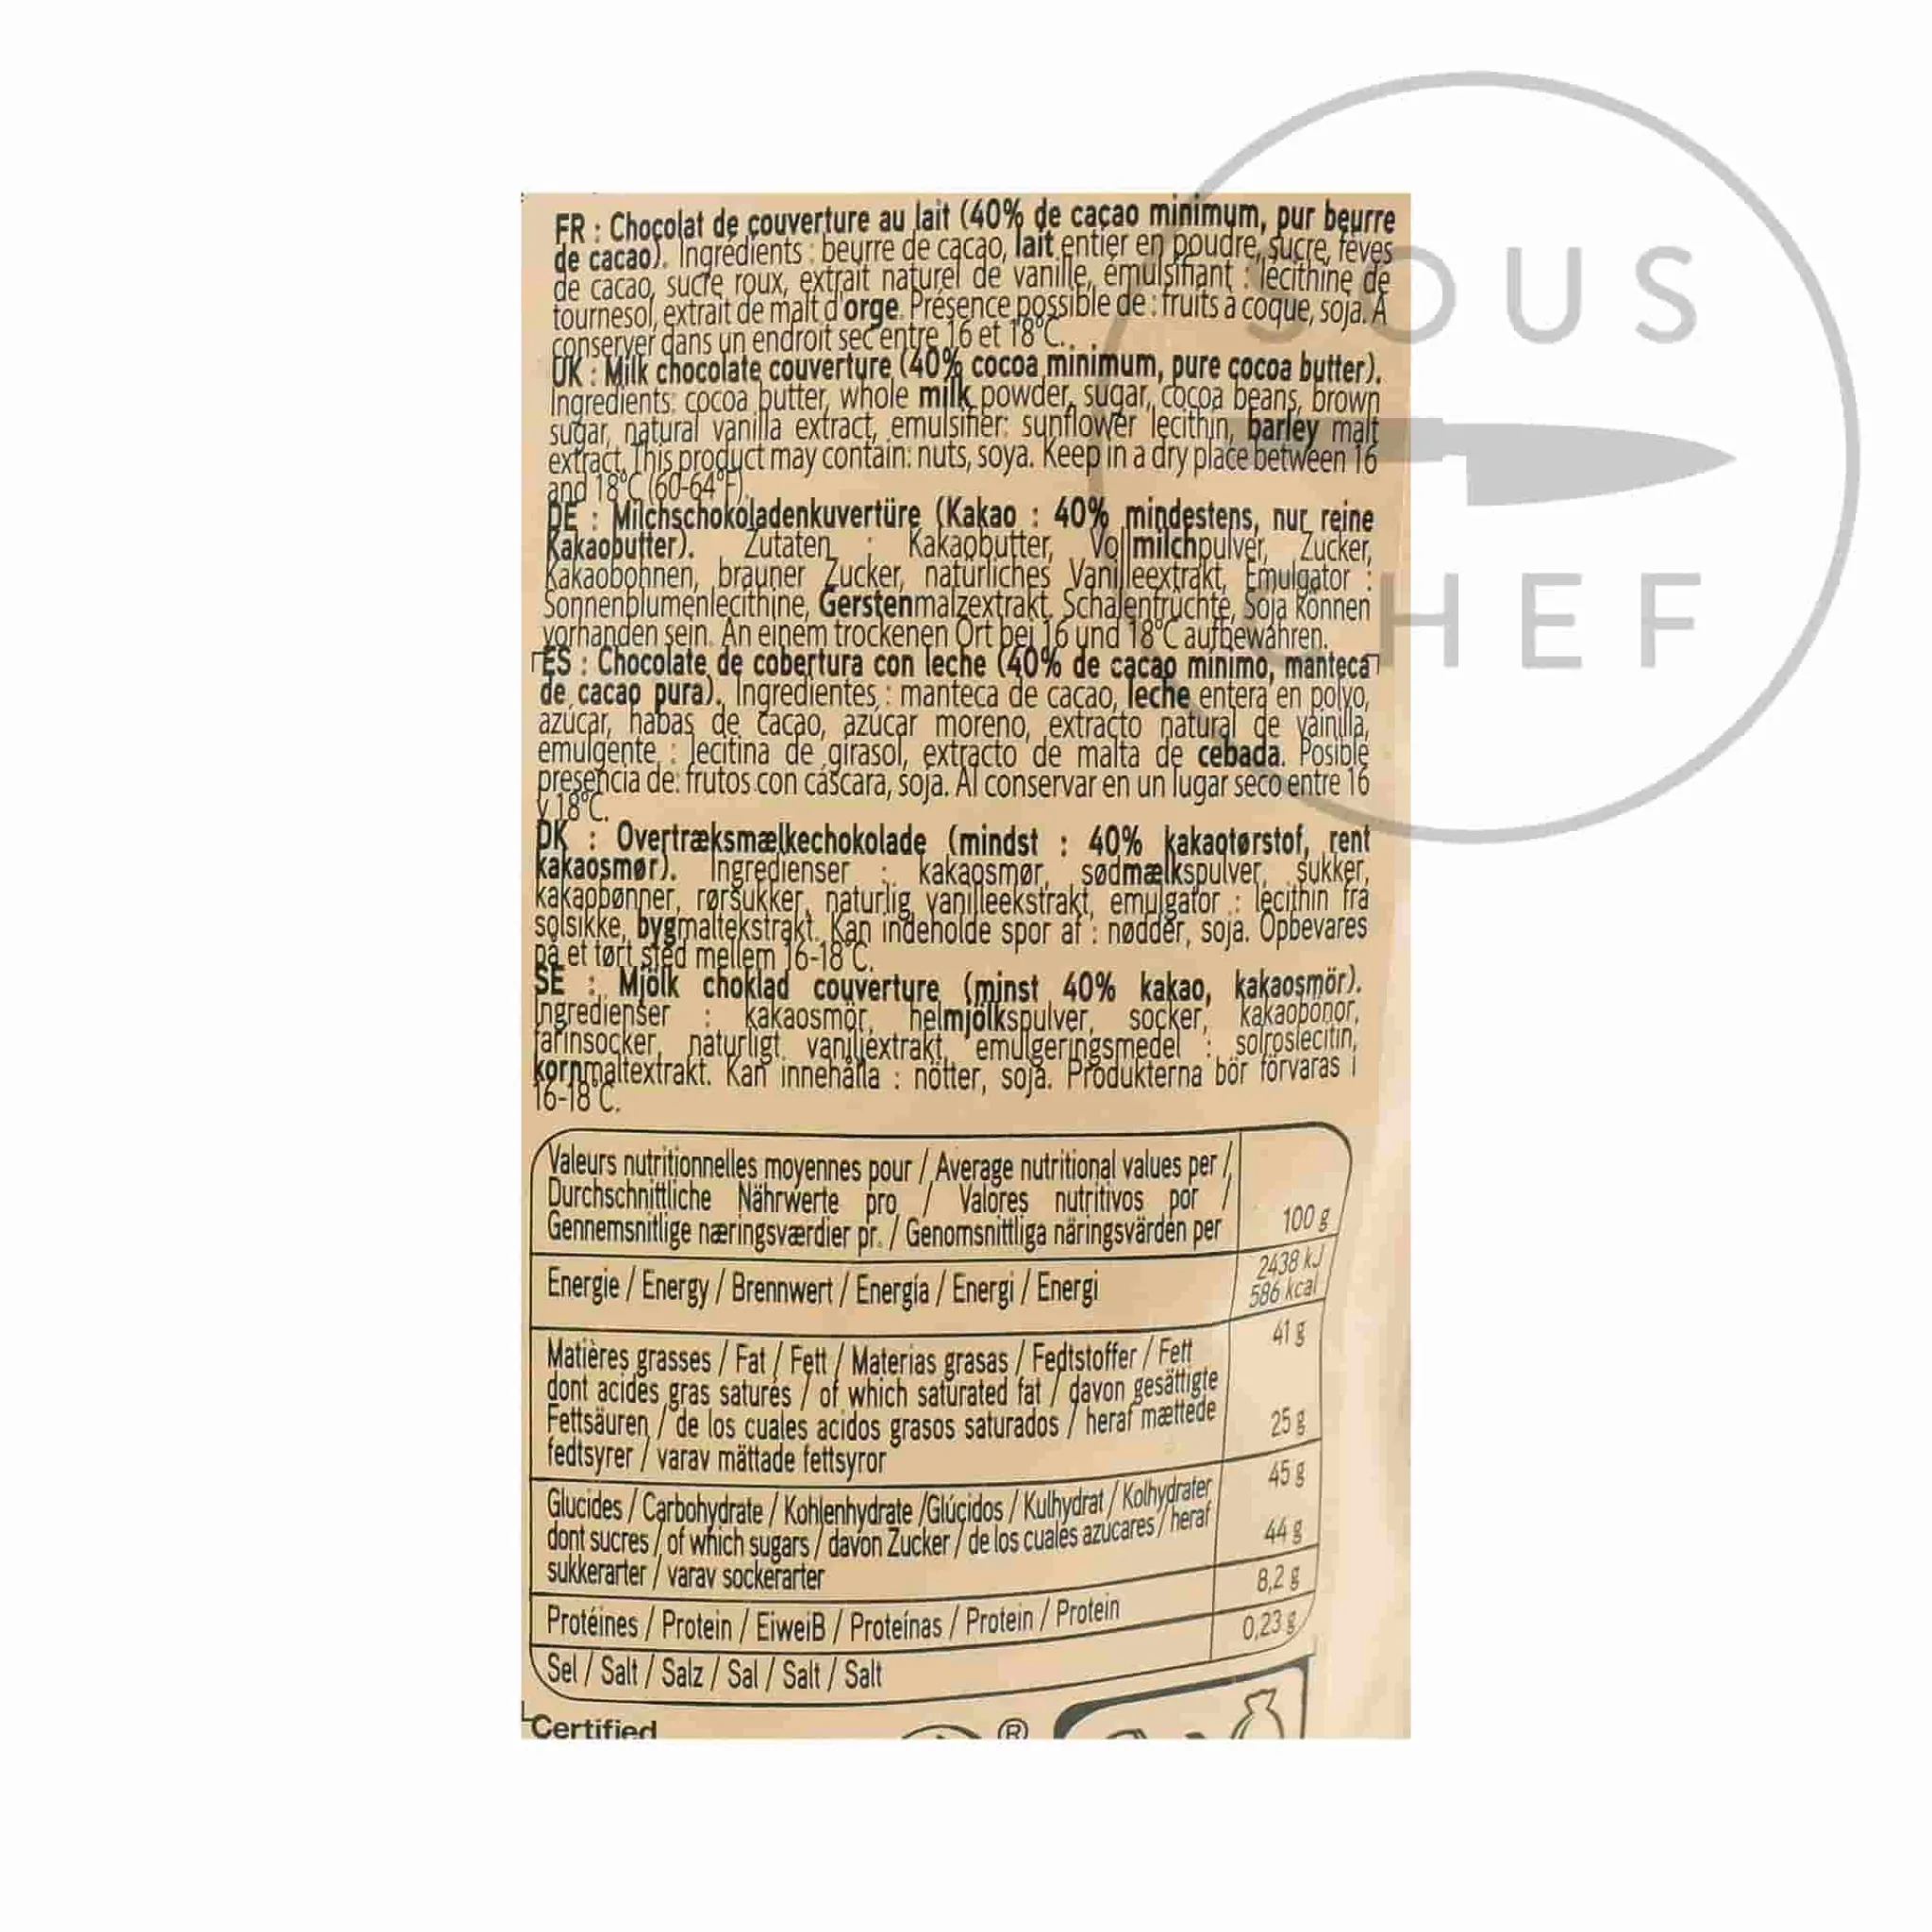 FR : Chocolat de couverture au lait (40% de cacao minimum, pur beurre
de cacao). Ingrédients : beurre de cacao, lait entier en poudre, sucre, fèves
de cacao, sucre roux, extrait naturel de vanille, émulsifiant : lécithine de
tournesol, extrait de malt d'orge. Présence possible de : fruits à coque, soja. A
conserver dans un endroit sec entre 16 et 18°C.
UK : Milk chocolate couverture (40% cocoa minimum, pure cocoa butter).
Ingredients: cocoa butter, whole milk powder, sugar, cocoa beans, brown
sugar, natural vanilla extract, emulsifier: sunflower lecithin, barley malt
extract. This product may contain: nuts, soya. Keep in a dry place between 16
and 18°C (60-64°F).
DE : Milchschokoladenkuvertüre (Kakao : 40% mindestens, nur reine
Kakaobutter). Zutaten : Kakaobutter, Vollmilchpulver, Zucker,
Kakaobohnen, brauner Zucker, natürliches Vanilleextrakt, Emulgator :
Sonnenblumenlecithine, Gerstenmalzextrakt. Schalenfrüchte, Soja können
vorhanden sein. An einem trockenen Ort bei 16 und 18°C aufbewahren.
ES : Chocolate de cobertura con leche (40% de cacao mínimo, manteca
de cacao pura). Ingredientes : manteca de cacao, leche entera en polvo,
azúcar, habas de cacao, azúcar moreno, extracto natural de vainilla,
emulgente : lecitina de girasol, extracto de malta de cebada. Posible
presencia de: frutos con cáscara, soja. Al conservar en un lugar seco entre 16
y 18°C.
DK : Overtræksmælkechokolade (mindst : 40% kakaotørstof, rent
kakaosmør). Ingredienser : kakaosmør, sødmælkspulver, sukker,
kakaobønner, rørsukker, naturlig vanilleekstrakt, emulgator : lecithin fra
solsikke, bygmaltekstrakt. Kan indeholde spor af : nødder, soja. Opbevares
på et tørt sted mellem 16-18°C.
SE : Mjölk choklad couverture (minst 40% kakao, kakaosmör).
Ingredienser : kakaosmör, helmjölkspulver, socker, kakaobönor,
farinsocker, naturligt vaniljextrakt, emulgeringsmedel : solroslecitin,
kornmaltextrakt. Kan innehålla : nötter, soja. Produkterna bör förvaras i
16-18°C.
Valeurs nutritionnelles moyennes pour / Average nutritional values per /
Durchschnittliche Nährwerte pro / Valores nutritivos por /
Gennemsnitlige næringsværdier pr. / Genomsnittliga näringsvärden per 100 g
Energie / Energy / Brennwert / Energía / Energi / Energi 2438 kJ
586 kcal
Matières grasses / Fat / Fett / Materias grasas / Fedtstoffer / Fett 41 g
dont acides gras saturés / of which saturated fat / davon gesättigte
Fettsäuren / de los cuales acidos grasos saturados / heraf mættede 25 g
fedtsyrer / varav mättade fettsyror
Glucides / Carbohydrate / Kohlenhydrate /Glúcidos / Kulhydrat / Kolhydrater 45 g
dont sucres / of which sugars / davon Zucker / de los cuales azucares / heraf 44 g
sukkerarter / varav sockerarter
Protéines / Protein / EiweiB / Proteínas / Protein / Protein 8,2 g
Sel / Salt / Salz / Sal / Salt / Salt 0,23 g
Certified
®
SOUS
CHEF